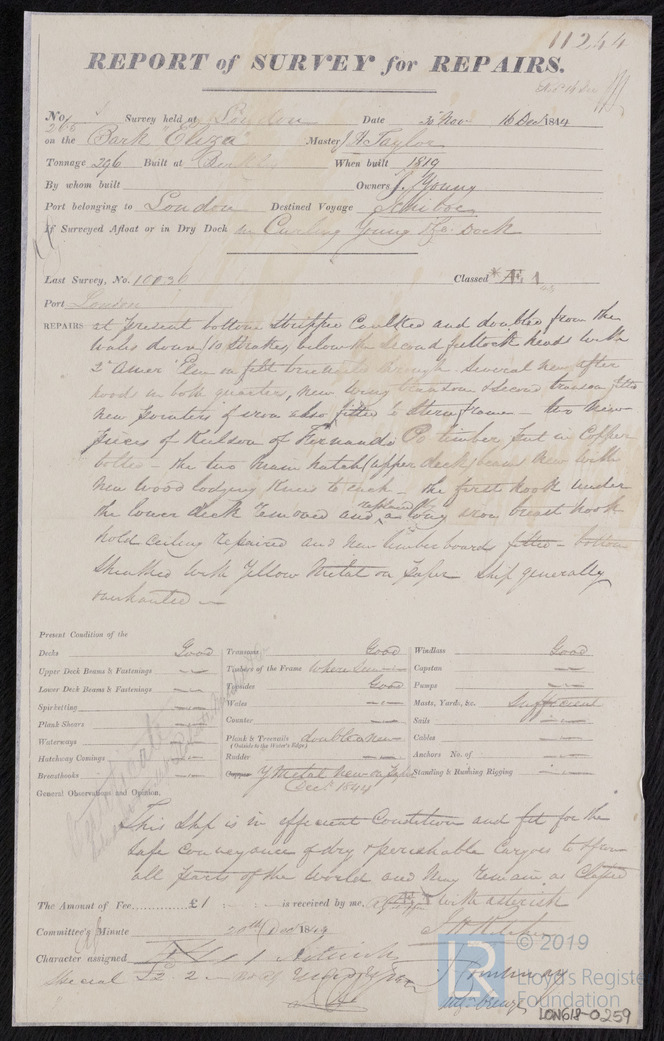 11244
REPORT of SURVEY for REPAIRS.
No. Survey held at London Date 30 Nov 16 Dec 1844
on the Bark "Eliza" Master J H Taylor
Tonnage 296 Built at When built 1819
By whom built Owners J. Young
Port belonging to London Destined Voyage
If Surveyed Afloat or in Dry Dock in Curling Young & Co Dock
Last Survey, No. Classed * Æ 1
Port London
REPAIRS at present bottom stripped Caulked and doubled from the
Wales down 10 Strakes below the Second futtock heads with
2 Amer Elm on felt treenails through several new after
hoods in both quarters, New wing transom & second transom fitted
New Pointers of iron also fitted to Stern frame – two New
pieces of Keelson of Fernando Po timber put in Copper
bolted – the two Main hatch (upper deck) beams New with
New Wood lodging Knees to each – the first hook under
the lower deck removed and replaced by a long iron breast hook
hold Ceiling repaired and New limberboards fitted – bottom
Sheathed with Yellow Metal on Paper Ship generally
overhauled –
Present Condition of the
Decks Good Transoms Good Windlass Good
Upper Deck Beams & Fastenings Timbers of the Frame where seen Capstan
Lower Deck Beams & Fastenings Topsides Good Pumps
Spirketting Wales Masts, Yards, &c. Sufficient
Plank Shears Counter Sails
Waterways Plank & Treenails doubled new Cables
(Outside to the Water's Edge)
Hatchway Comings Rudder Anchors No. of
Breasthooks Copper Y Metal New on Paper Standing & Running Rigging
Decr 1844
General Observations and Opinion.
Certificate
This Ship is in efficient Condition and fit for the
safe Conveyance of dry & perishable Cargoes to & from
all parts of the World and May remain as Classed
Æ 1 with asterisk
The Amount of Fee £1 is received by me,
Committee's Minute 20th Decr 18
Character assigned Æ 1
Special
© 2019
LR
Lloyd's Register
Foundation
LON618-0259